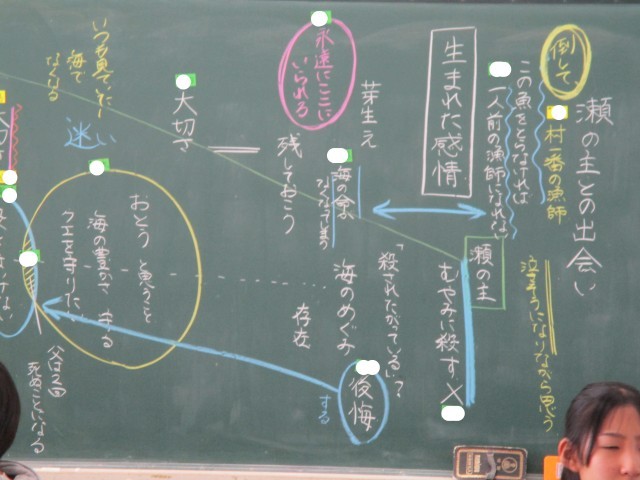 瀬の主との出会い
倒して、
村一番の漁師
泣きそうになりながら思う
この魚をとらなければ
一人前の漁師になれない
瀬の主
むやみに殺す×
生まれた感情
「殺されたがっている」?
芽生え
海の命
なくなってしまう
海のめぐみ
後悔
する
永遠にここに
いられる
残しておこう
存在
大切さ
おとう 思うこと
海の豊かさ 守る
クエを守りたい
迷い
いつも見ていた
海で
なくなる
父は2回
死ぬことになる